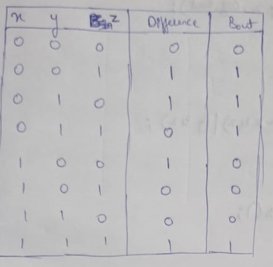 x y z Difference Bout
0 0 0 0 0
0 0 1 1 1
0 1 0 1 1
0 1 1 0 1
1 0 0 1 0
1 0 1 0 0
1 1 0 0 0
1 1 1 1 1